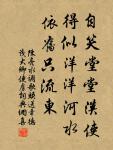 自笑堂堂漢使
得似洋洋河水
依舊只流東
陳亮水調歌頭送章德
茂大卿使虜詞典網書